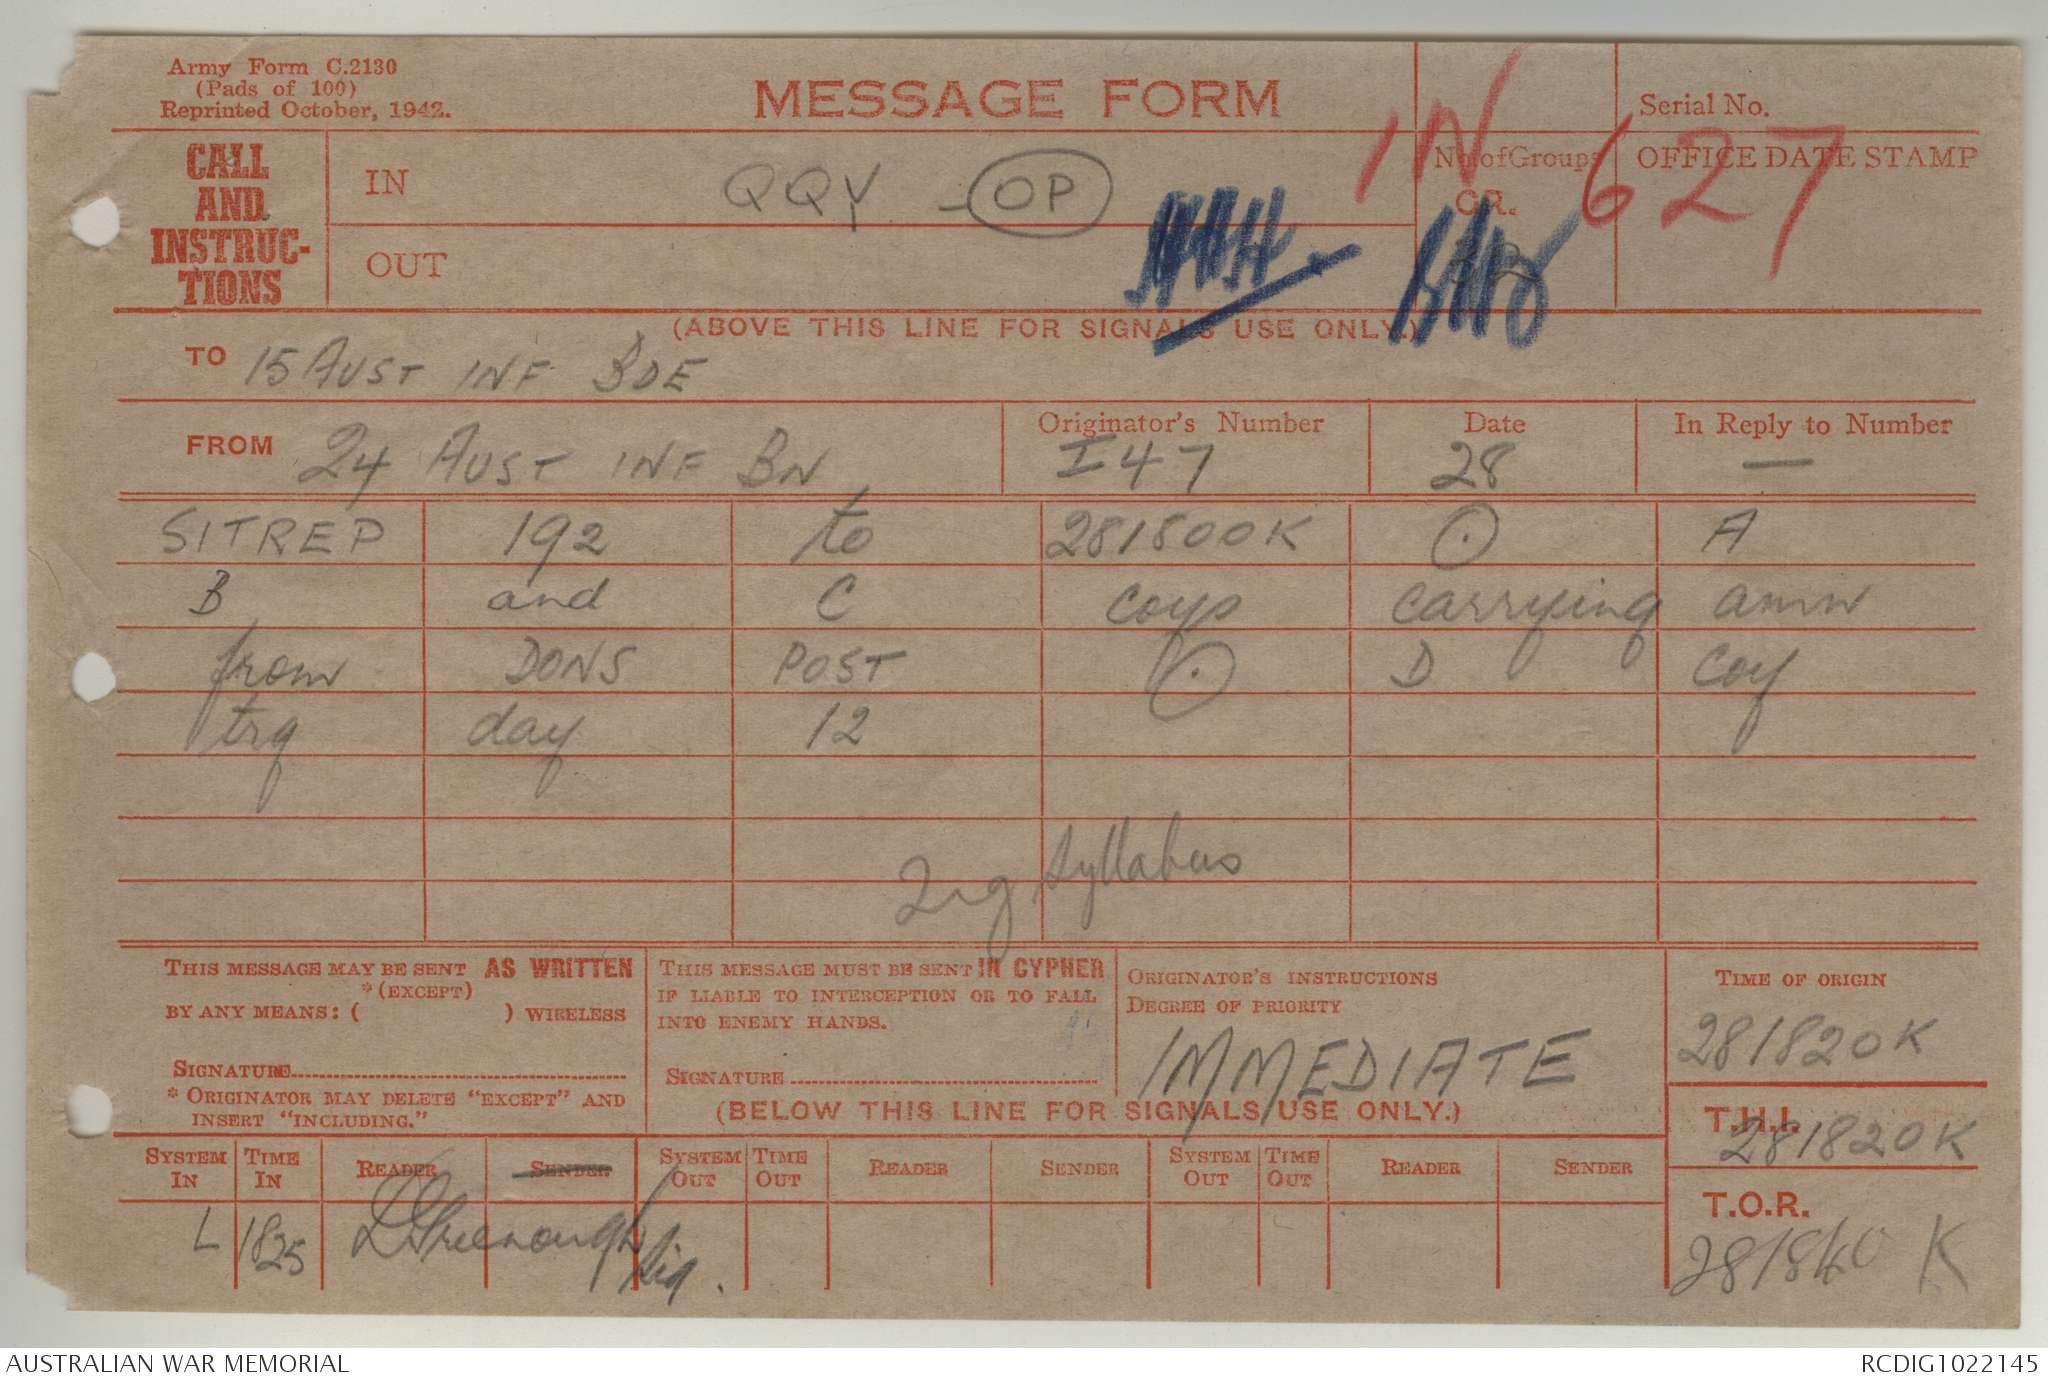 Army Form C.2130
(Pads of 100)
Reprinted October, 1942.
MESSAGE FORM
IN 627
Serial No.
CALL
AND
INSTRUC-
TIONS
IN
QQY - OP
No. of Groups
GR.
OFFICE DATE STAMP
OUT
32
(ABOVE THIS LINE FOR SIGNALS USE ONLY.)
TO 15 AUST INF BDE
FROM 24 AUST INF BN
Originator's Number
I47
Date
28
In Reply to Number
—
SITREP 192 to 281800K ⊙ A
B and C coys carrying amn
from DONS POST ⊙ D coy
trg day 12
Trg Syllabus
THIS MESSAGE MAY BE SENT AS WRITTEN
*(EXCEPT)
BY ANY MEANS: ( ) WIRELESS
SIGNATURE
* ORIGINATOR MAY DELETE "EXCEPT" AND
INSERT "INCLUDING."
THIS MESSAGE MUST BE SENT IN CYPHER
IF LIABLE TO INTERCEPTION OR TO FALL
INTO ENEMY HANDS.
SIGNATURE
ORIGINATOR'S INSTRUCTIONS
DEGREE OF PRIORITY
IMMEDIATE
TIME OF ORIGIN
281820K
(BELOW THIS LINE FOR SIGNALS USE ONLY.)
T.H.I.
281820K
SYSTEM IN TIME IN READER SENDER SYSTEM OUT TIME OUT READER SENDER SYSTEM OUT TIME OUT READER SENDER
L 1825 Greenough Sig.
T.O.R.
281840 K
AUSTRALIAN WAR MEMORIAL
RCDIG1022145